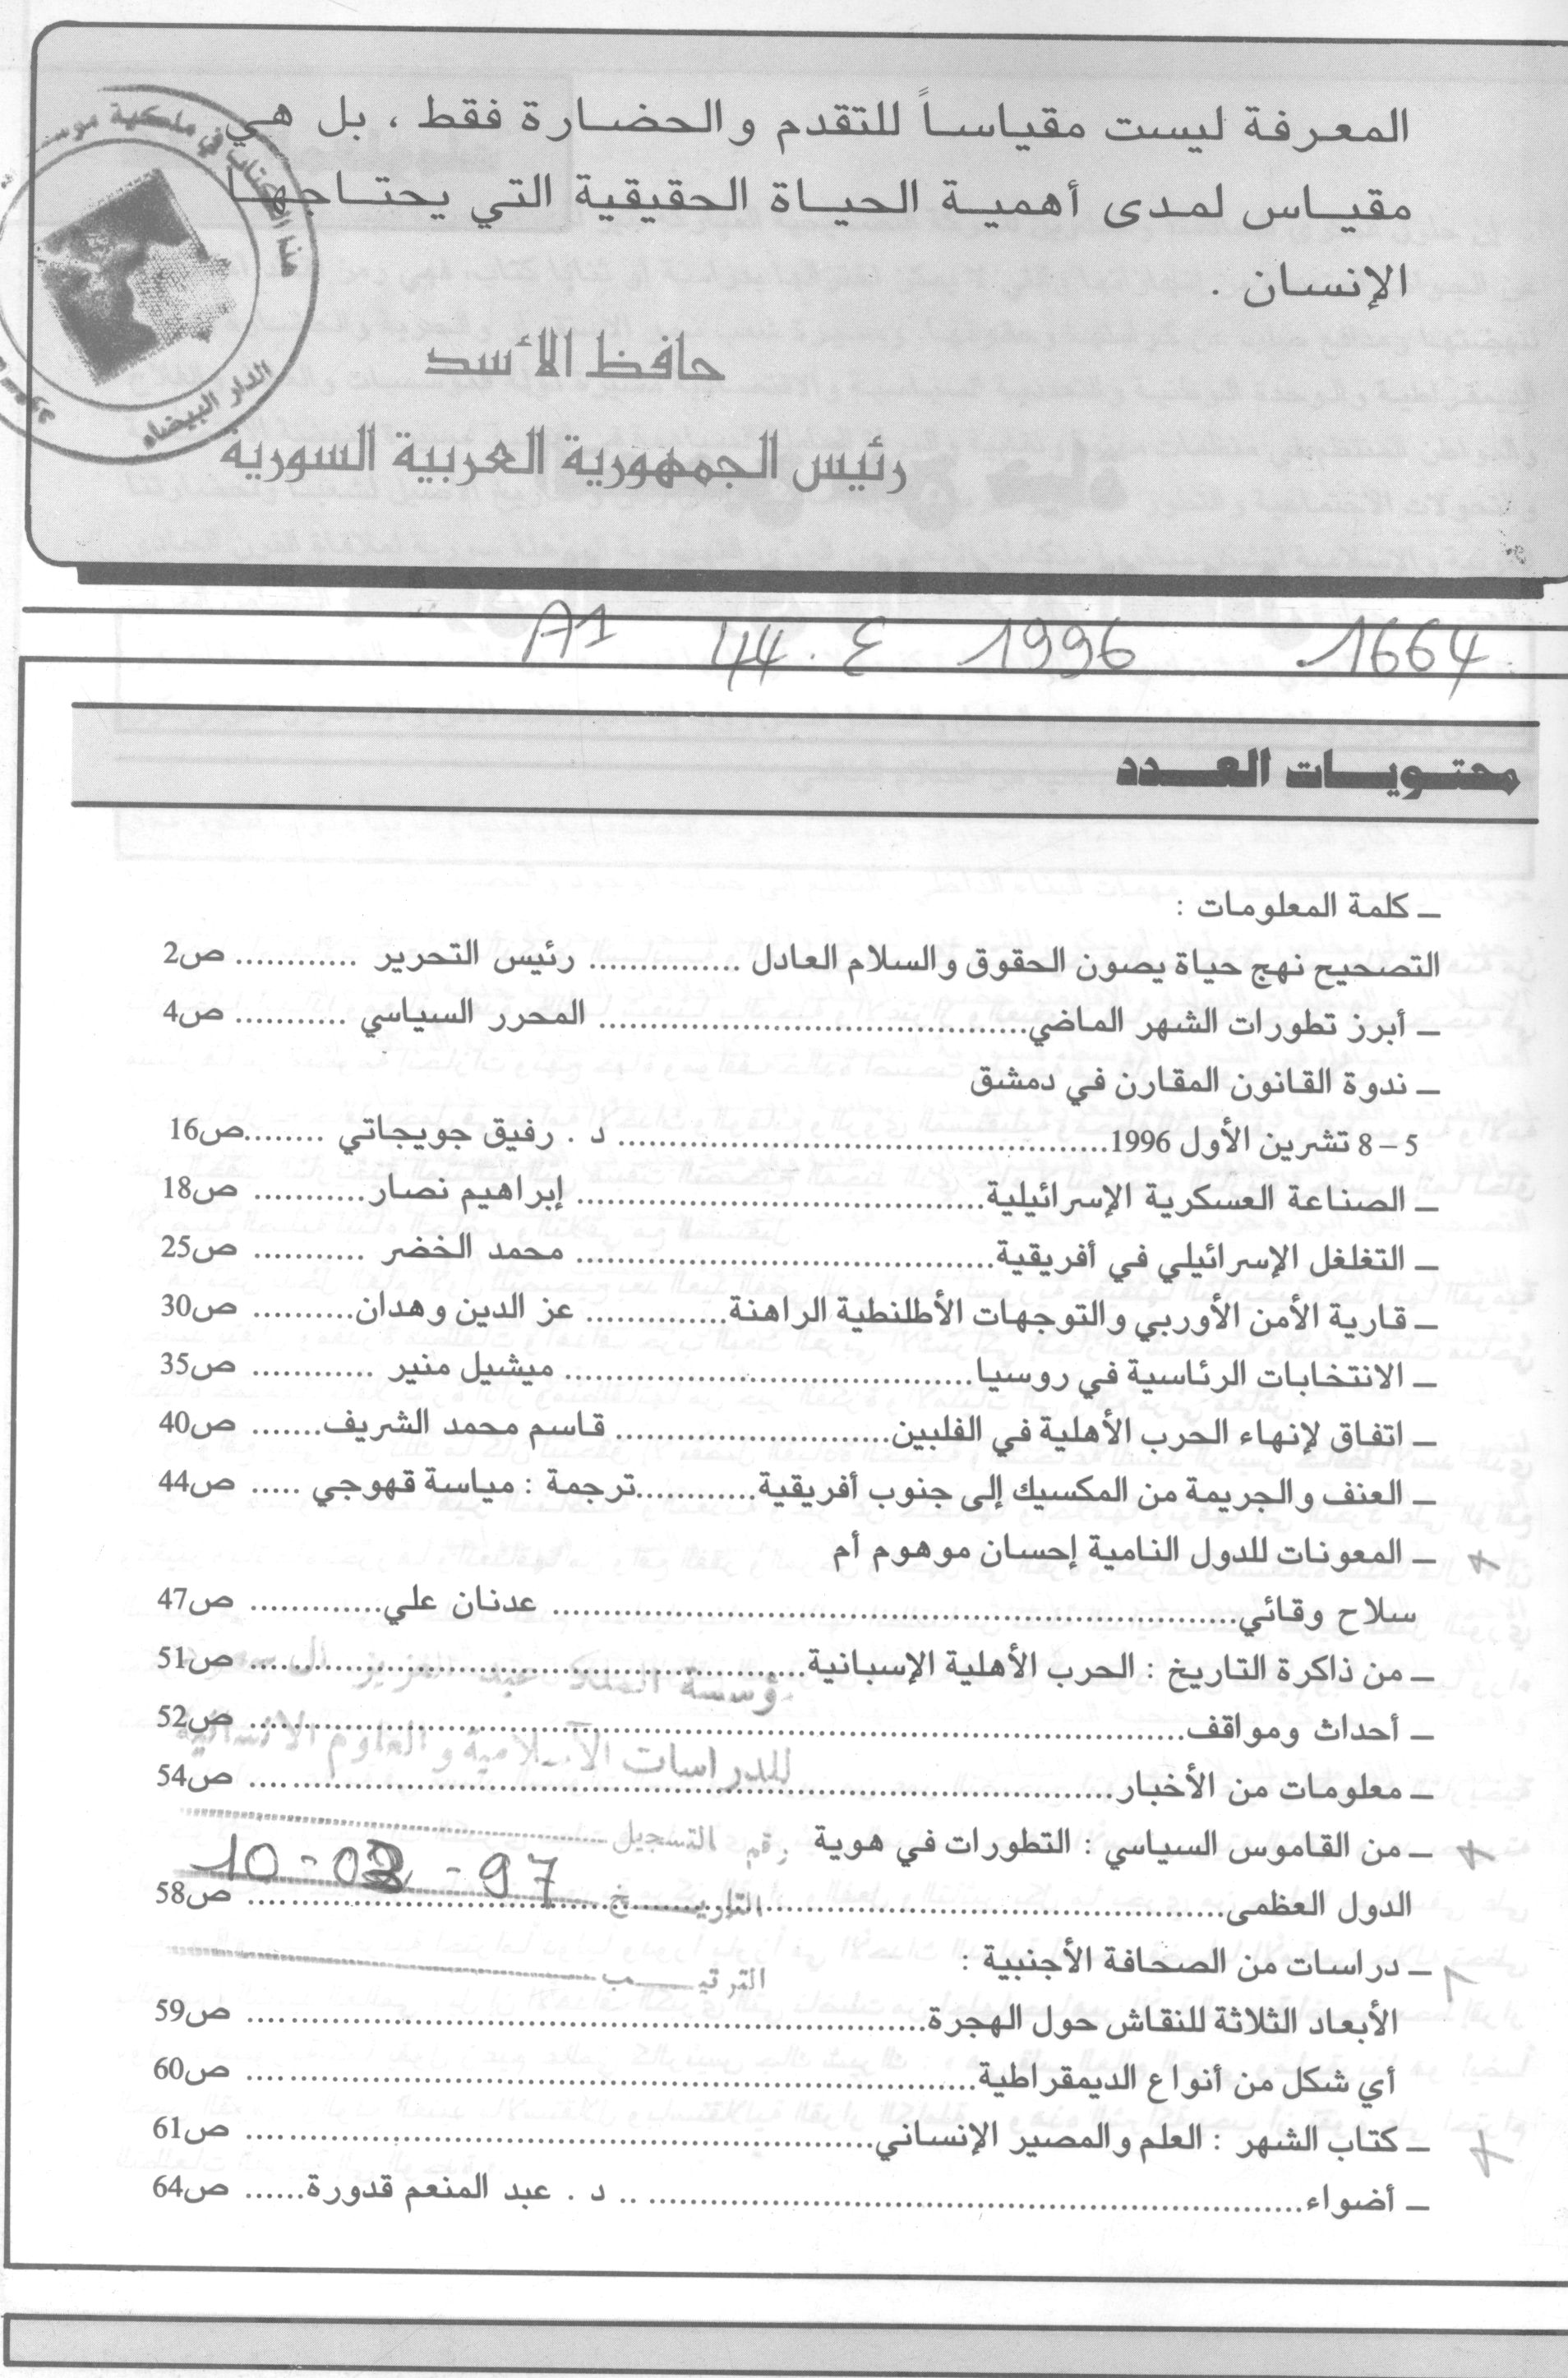 المعرفة ليست مقياساً للتقدم والحضارة فقط ، بل هي
مقياس لمدى أهمية الحياة الحقيقية التي يحتاجها
الإنسان .
حافظ الأسد
رئيس الجمهورية العربية السورية
هذا الكتاب في ملكية
الدار البيضاء
A1 44.E 1996 1664
محتويات العدد
ـ كلمة المعلومات :
التصحيح نهج حياة يصون الحقوق والسلام العادل ............... رئيس التحرير ............ ص2
ـ أبرز تطورات الشهر الماضي........................................... المحرر السياسي ........... ص4
ـ ندوة القانون المقارن في دمشق
5 – 8 تشرين الأول 1996................................................. د . رفيق جويجاتي ........ص16
ـ الصناعة العسكرية الإسرائيلية......................................... إبراهيم نصار........... ص18
ـ التغلغل الإسرائيلي في أفريقية.......................................... محمد الخضر ........... ص25
ـ قارية الأمن الأوربي والتوجهات الأطلنطية الراهنة.............. عز الدين وهدان.......... ص30
ـ الانتخابات الرئاسية في روسيا......................................... ميشيل منير ............ ص35
ـ اتفاق لإنهاء الحرب الأهلية في الفلبين........................... قاسم محمد الشريف....... ص40
ـ العنف والجريمة من المكسيك إلى جنوب أفريقية............ترجمة : مياسة قهوجي ..... ص44
ـ المعونات للدول النامية إحسان موهوم أم
سلاح وقائي..................................................................... عدنان علي............. ص47
ـ من ذاكرة التاريخ : الحرب الأهلية الإسبانية........................................................ ص51
مؤسسة الملك عبد العزيز آل سعود
ـ أحداث ومواقف.............................................................................................. ص52
للدراسات الاسلامية والعلوم الانسانية
ـ معلومات من الأخبار....................................................................................... ص54
ـ من القاموس السياسي : التطورات في هوية
رقم التسجيل
الدول العظمى................................................................................................. ص58
التاريخ 10-02-97
ـ دراسات من الصحافة الأجنبية :
الترتيب
الأبعاد الثلاثة للنقاش حول الهجرة.................................................................... ص59
أي شكل من أنواع الديمقراطية......................................................................... ص60
ـ كتاب الشهر : العلم والمصير الإنساني............................................................... ص61
ـ أضواء................................................................... .. د . عبد المنعم قدورة...... ص64